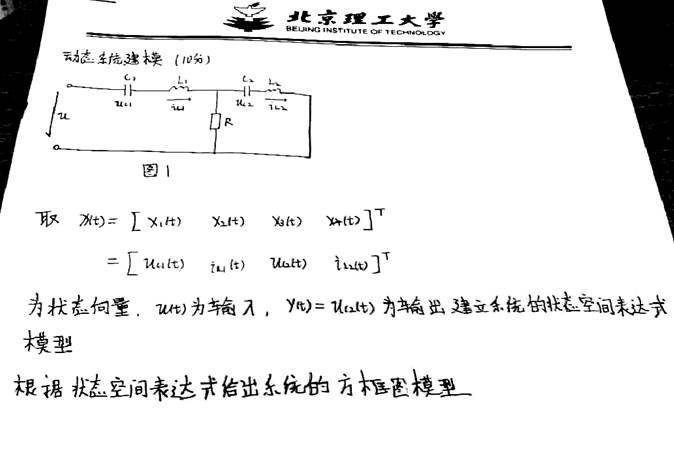 北京理工大学
BEIJING INSTITUTE OF TECHNOLOGY
动态系统建模 (10分)
C₁ L₁ C₂ L₂
u_C1 i_L1 u_C2 i_L2
u R
图1
取 X(t) = [ X₁(t) X₂(t) X₃(t) X₄(t) ]ᵀ
= [ u_C1(t) i_L1(t) u_C2(t) i_L2(t) ]ᵀ
为状态向量, u(t)为输入, y(t) = u_C2(t) 为输出 建立系统的状态空间表达式
模型
根据状态空间表达式给出系统的方框图模型